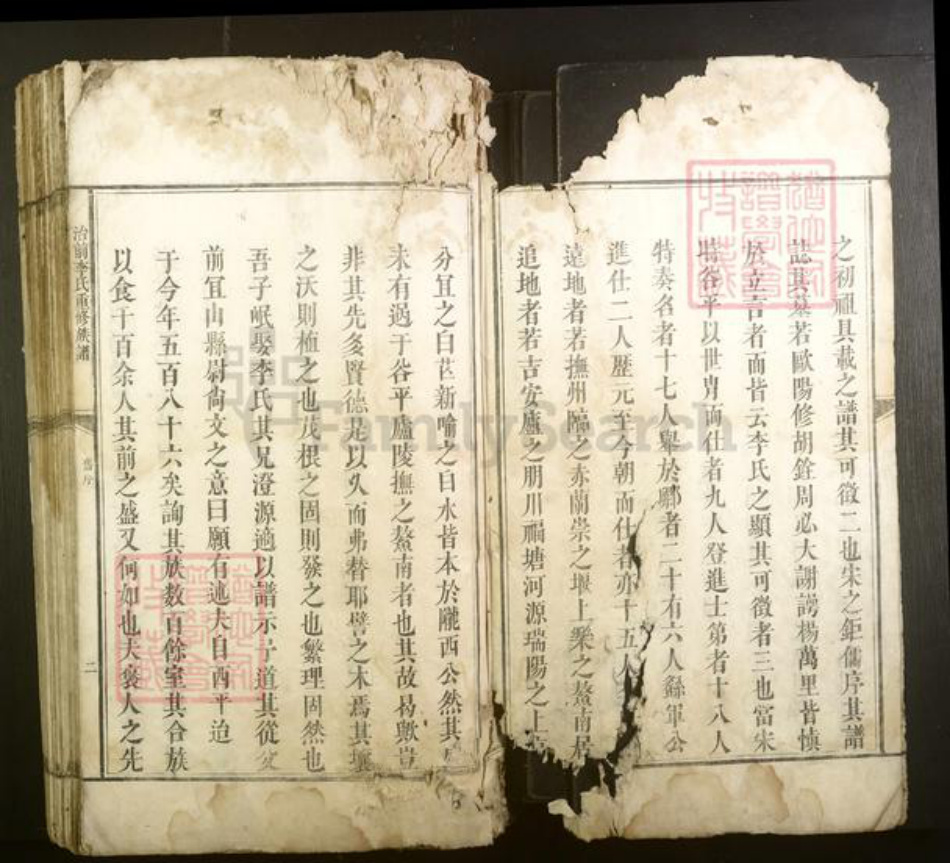 之初祖具載之譜其可徵二也宋之鉅儒序其譜
誌其墓若歐陽修胡銓周必大謝諤楊萬里皆慎
於立言者而皆云李氏之顯其可徵者三也當宋
時谷平以世冑而仕者九人登進士第者十八人
特奏名者十七人舉於鄉者二十有六人繇軍公
進仕二人歷元至今朝而仕者亦十五人
遠地者若撫州臨之赤蘭崇之堰上樂之鰲南居
追地者若吉安廬之朋川福塘河源瑞陽之上
分宜之白芒新喻之日水皆本於隴西公然其
未有過于谷平廬陵撫之鰲南者也其故易歟豈
非其先多賢德是以久而弗替耶譬之木焉其壤
之沃則植之也茂根之固則發之也繁理固然也
吾子岷娶李氏其兄澄源適以譜示予道其從父
前宜山縣尉尚文之意曰願有述夫自西平迨
于今年五百八十六矣詢其族數百餘室其合族
以食千百余人其前之盛又何如也夫褒人之先
治前李氏重修族譜
舊序
二
FamilySearch